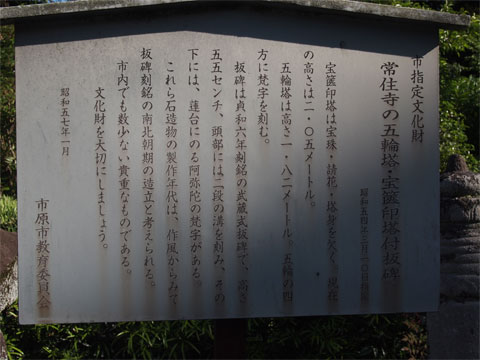 市指定文化財
常住寺の五輪塔・宝篋印塔付板碑
昭和五四年三月一〇日指定
宝篋印塔は宝珠・請花・塔身を欠く。現在
の高さは二・〇五メートル。
五輪塔は高さ一・八二メートル。五輪の四
方に梵字を刻む。
板碑は貞和六年刻銘の武蔵式板碑で、高さ
五五センチ、頭部には二段の溝を刻み、その
下には、蓮台にのる阿弥陀の梵字がある。
これら石造物の製作年代は、作風からみて
板碑刻銘の南北朝期の造立と考えられる。
市内でも数少ない貴重なものである。
文化財を大切にしましょう。
昭和五七年一月
市原市教育委員会